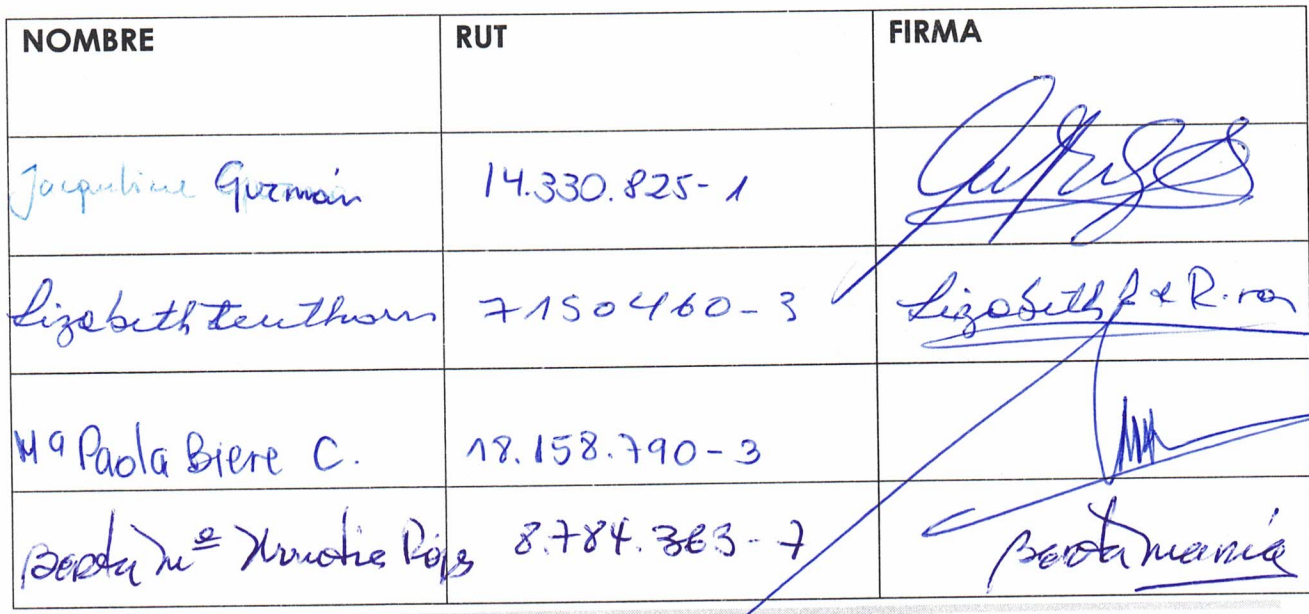 NOMBRE RUT FIRMA
Jacqueline Guzmán 14.330.825-1
Lizabeth 7150460-3 Lizabeth
Mª Paola Biere C. 18.158.790-3
Berta Mª 8.784.363-7 Berta María